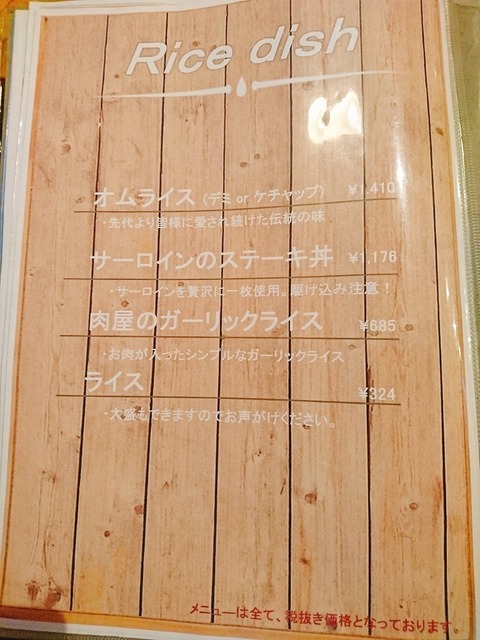 Rice dish
オムライス (デミ or ケチャップ) ¥1,410
・先代より皆様に愛され続けた伝統の味
サーロインのステーキ丼 ¥1,176
・サーロインを贅沢に一枚使用。駆け込み注意！
肉屋のガーリックライス ¥685
・お肉が入ったシンプルなガーリックライス
ライス ¥324
・大盛もできますのでお声がけください。
メニューは全て、税抜き価格となっております。